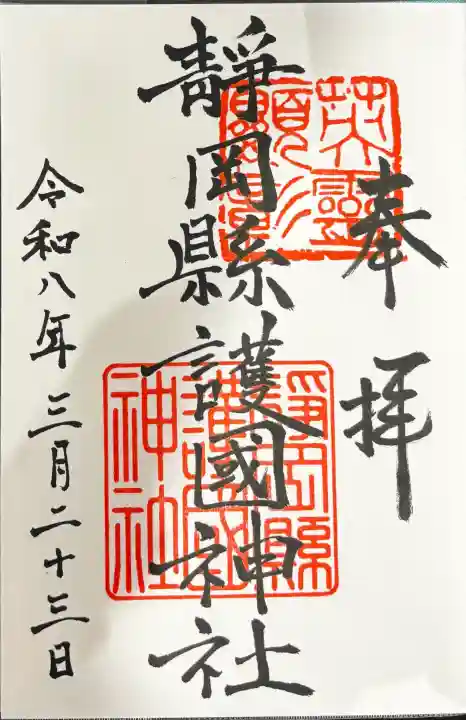 奉拝
靜岡縣護國神社
令和八年三月二十三日
英靈
顕彰
靜岡縣
護國
神社